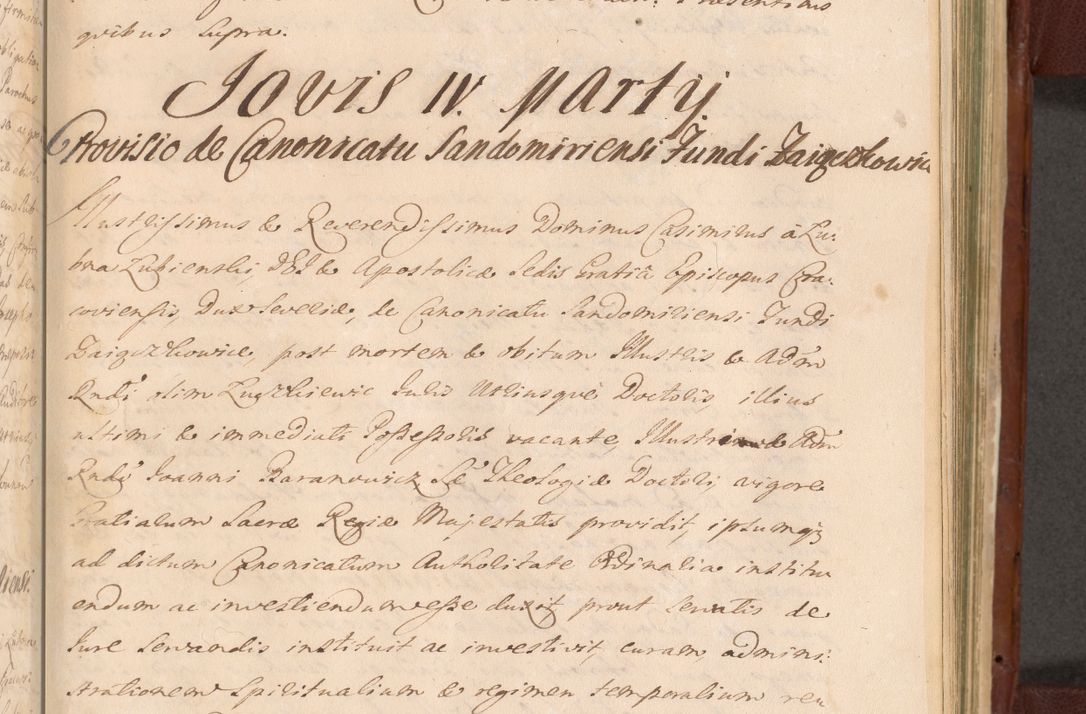 quibus supra.
Jovis IV. Martij.
Provisio de Canonicatu Sandomiriensi Fundi Zaięczkowice
Illustrissimus & Reverendissimus Dominus Casimirus à Łu:
bna Łubienski, DEI & Apostolicæ Sedis Gratiâ Episcopus Cra:
coviensis, Dux Severiæ, de Canonicatu Sandomiriensi Fundi
Zaięczkowice, post mortem & obitum Illustris & Adm̃
Rndi olim Łuszkiewic Juris Utriusque Doctoris, illius
ultimi & immediati Possessoris vacante, Illustri & Adm̃
Rndo Joanni Baranowicz Sæ Theologiæ Doctori, vigore
Gratiarum Sacræ Regiæ Majestatis providit, ipsumq3
ad dictum Canonicatum Authoritate Ordinaria institu
endum ac investiendum esse duxit, prout servatis de
Jure servandis instituit ac investivit, curam, admini:
strationem Spiritualium & regimen temporalium